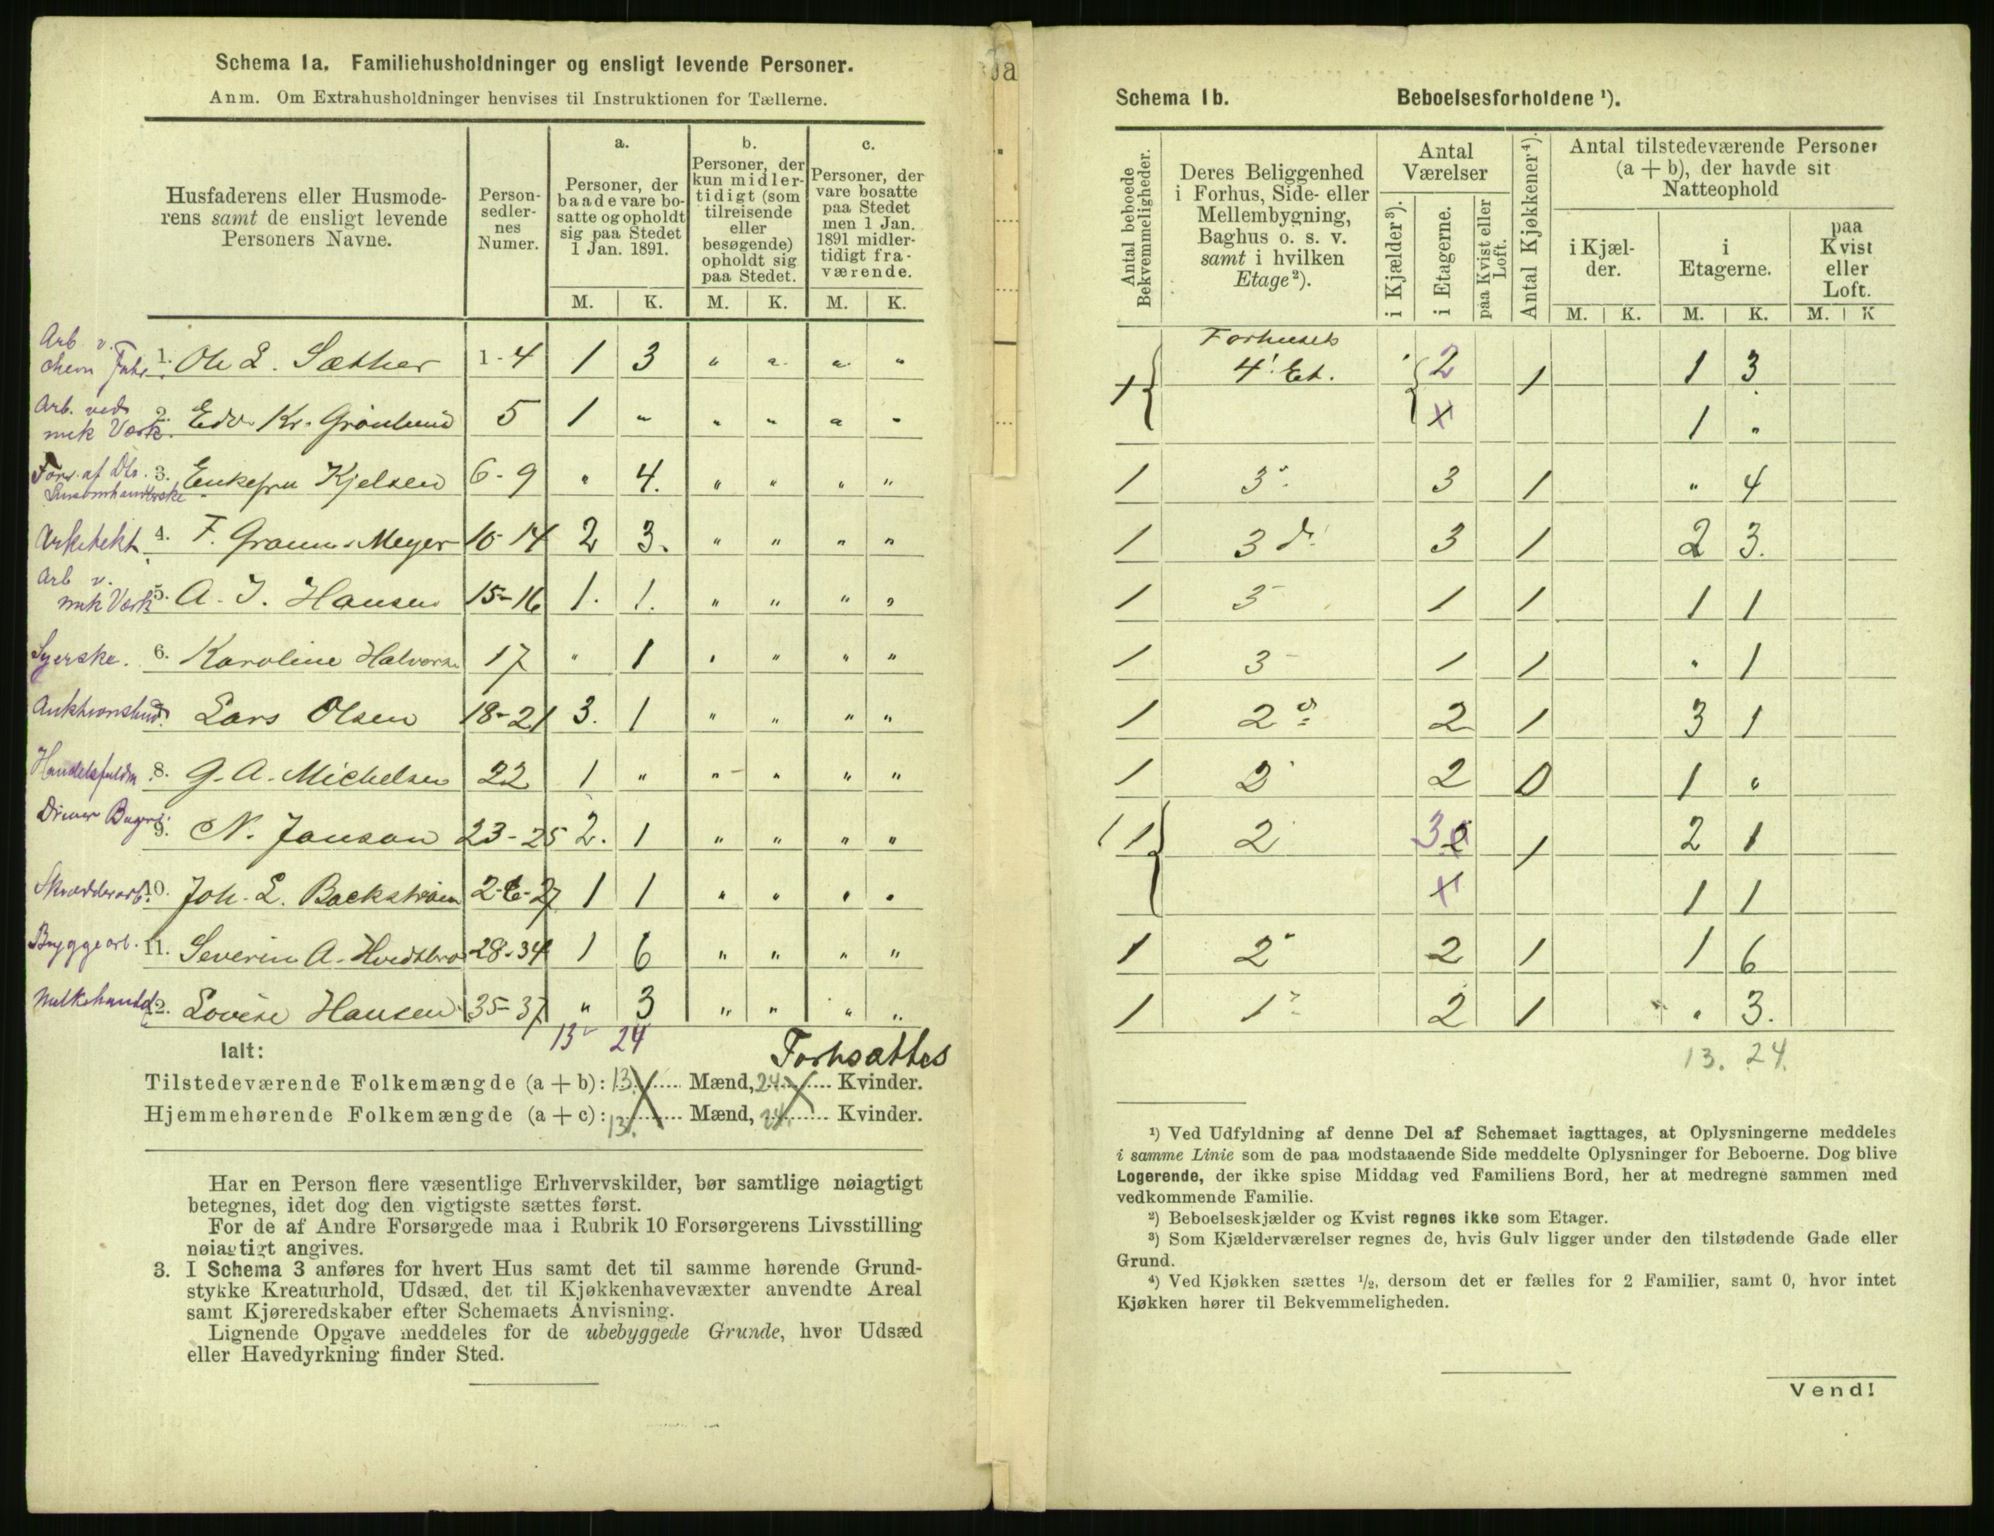 Schema 1a. Familiehusholdninger og ensligt levende Personer.
Anm. Om Extrahusholdninger henvises til Instruktionen for Tællerne.
Husfaderens eller Husmoderens samt de ensligt levende Personers Navne.
Personsedlernes Numer.
a. Personer, der baade vare bosatte og opholdt sig paa Stedet 1 Jan. 1891.
b. Personer, der kun midlertidigt (som tilreisende eller besøgende) opholdt sig paa Stedet.
c. Personer, der vare bosatte paa Stedet men 1 Jan. 1891 midlertidigt fraværende.
M. K. M. K. M. K.
Arb v. chem Fabr. 1. Ole L. Sæther 1-4 1 3 " " " "
Arb. ved mek Værk. 2. Edv Kr. Grönlund 5 1 " " " " "
3. Enkefru Kjelsen 6-9 " 4. " " " "
Arkitekt 4. F. Meyer 10-14 2 3. " " " "
Arb v. mek Værk 5. A. J. Hansen 15-16 1. 1. " " " "
Syerske. 6. Karoline Halvorsen 17 " 1 " " " "
Lars Olsen 18-21 3. 1 " " " "
Handelsfuldm. 8. G. A. Michelsen 22 1 " " " " "
Driver Bageri 9. N. Janson 23-25 2. 1 " " " "
Skrædderarb. 10. Joh. L. Backström 26-27 1 1 " " " "
Byggearb. 11. Severin A. Hvidsbro 28-34 1 6 " " " "
Melkehandel 12. Lovise Hansen 35-37 " 3 " " " "
13 24
Ialt: Forhsattes
Tilstedeværende Folkemængde (a + b): 13. Mænd, 24. Kvinder.
Hjemmehørende Folkemængde (a + c): 13. Mænd, 24. Kvinder.
Har en Person flere væsentlige Erhvervskilder, bør samtlige nøiagtigt
betegnes, idet dog den vigtigste sættes først.
For de af Andre Forsørgede maa i Rubrik 10 Forsørgerens Livsstilling
nøiagtigt angives.
3. I Schema 3 anføres for hvert Hus samt det til samme hørende Grund-
stykke Kreaturhold, Udsæd, det til Kjøkkenhavevæxter anvendte Areal
samt Kjøreredskaber efter Schemaets Anvisning.
Lignende Opgave meddeles for de ubebyggede Grunde, hvor Udsæd
eller Havedyrkning finder Sted.
Schema 1b. Beboelsesforholdene ¹).
Antal beboede Bekvemmeligheder.
Deres Beliggenhed i Forhus, Side- eller Mellembygning, Baghus o. s. v. samt i hvilken Etage ²).
Antal Værelser
i Kjælder ³).
i Etagerne.
paa Kvist eller Loft.
Antal Kjøkkener ⁴).
Antal tilstedeværende Personer (a + b), der havde sit Natteophold
i Kjælder.
i Etagerne.
paa Kvist eller Loft.
M. K. M. K. M. K
Forhusets
1 4' Et. 2 1 1 3
x 1 "
1 3" 3 1 " 4
1 3 d. 3 1 2 3.
1 3 1 1 1 1
1 3 1 1 " 1
1 2 2 1 3 1
1 2 2 0 1 "
1 2 3 2 1 2 1
x 1 1
1 2 2 1 1 6
1 1 2 1 " 3.
13. 24.
¹) Ved Udfyldning af denne Del af Schemaet iagttages, at Oplysningerne meddeles
i samme Linie som de paa modstaaende Side meddelte Oplysninger for Beboerne. Dog blive
Logerende, der ikke spise Middag ved Familiens Bord, her at medregne sammen med
vedkommende Familie.
²) Beboelseskjælder og Kvist regnes ikke som Etager.
³) Som Kjælderværelser regnes de, hvis Gulv ligger under den tilstødende Gade eller
Grund.
⁴) Ved Kjøkken sættes ½, dersom det er fælles for 2 Familier, samt 0, hvor intet
Kjøkken hører til Bekvemmeligheden.
Vend!